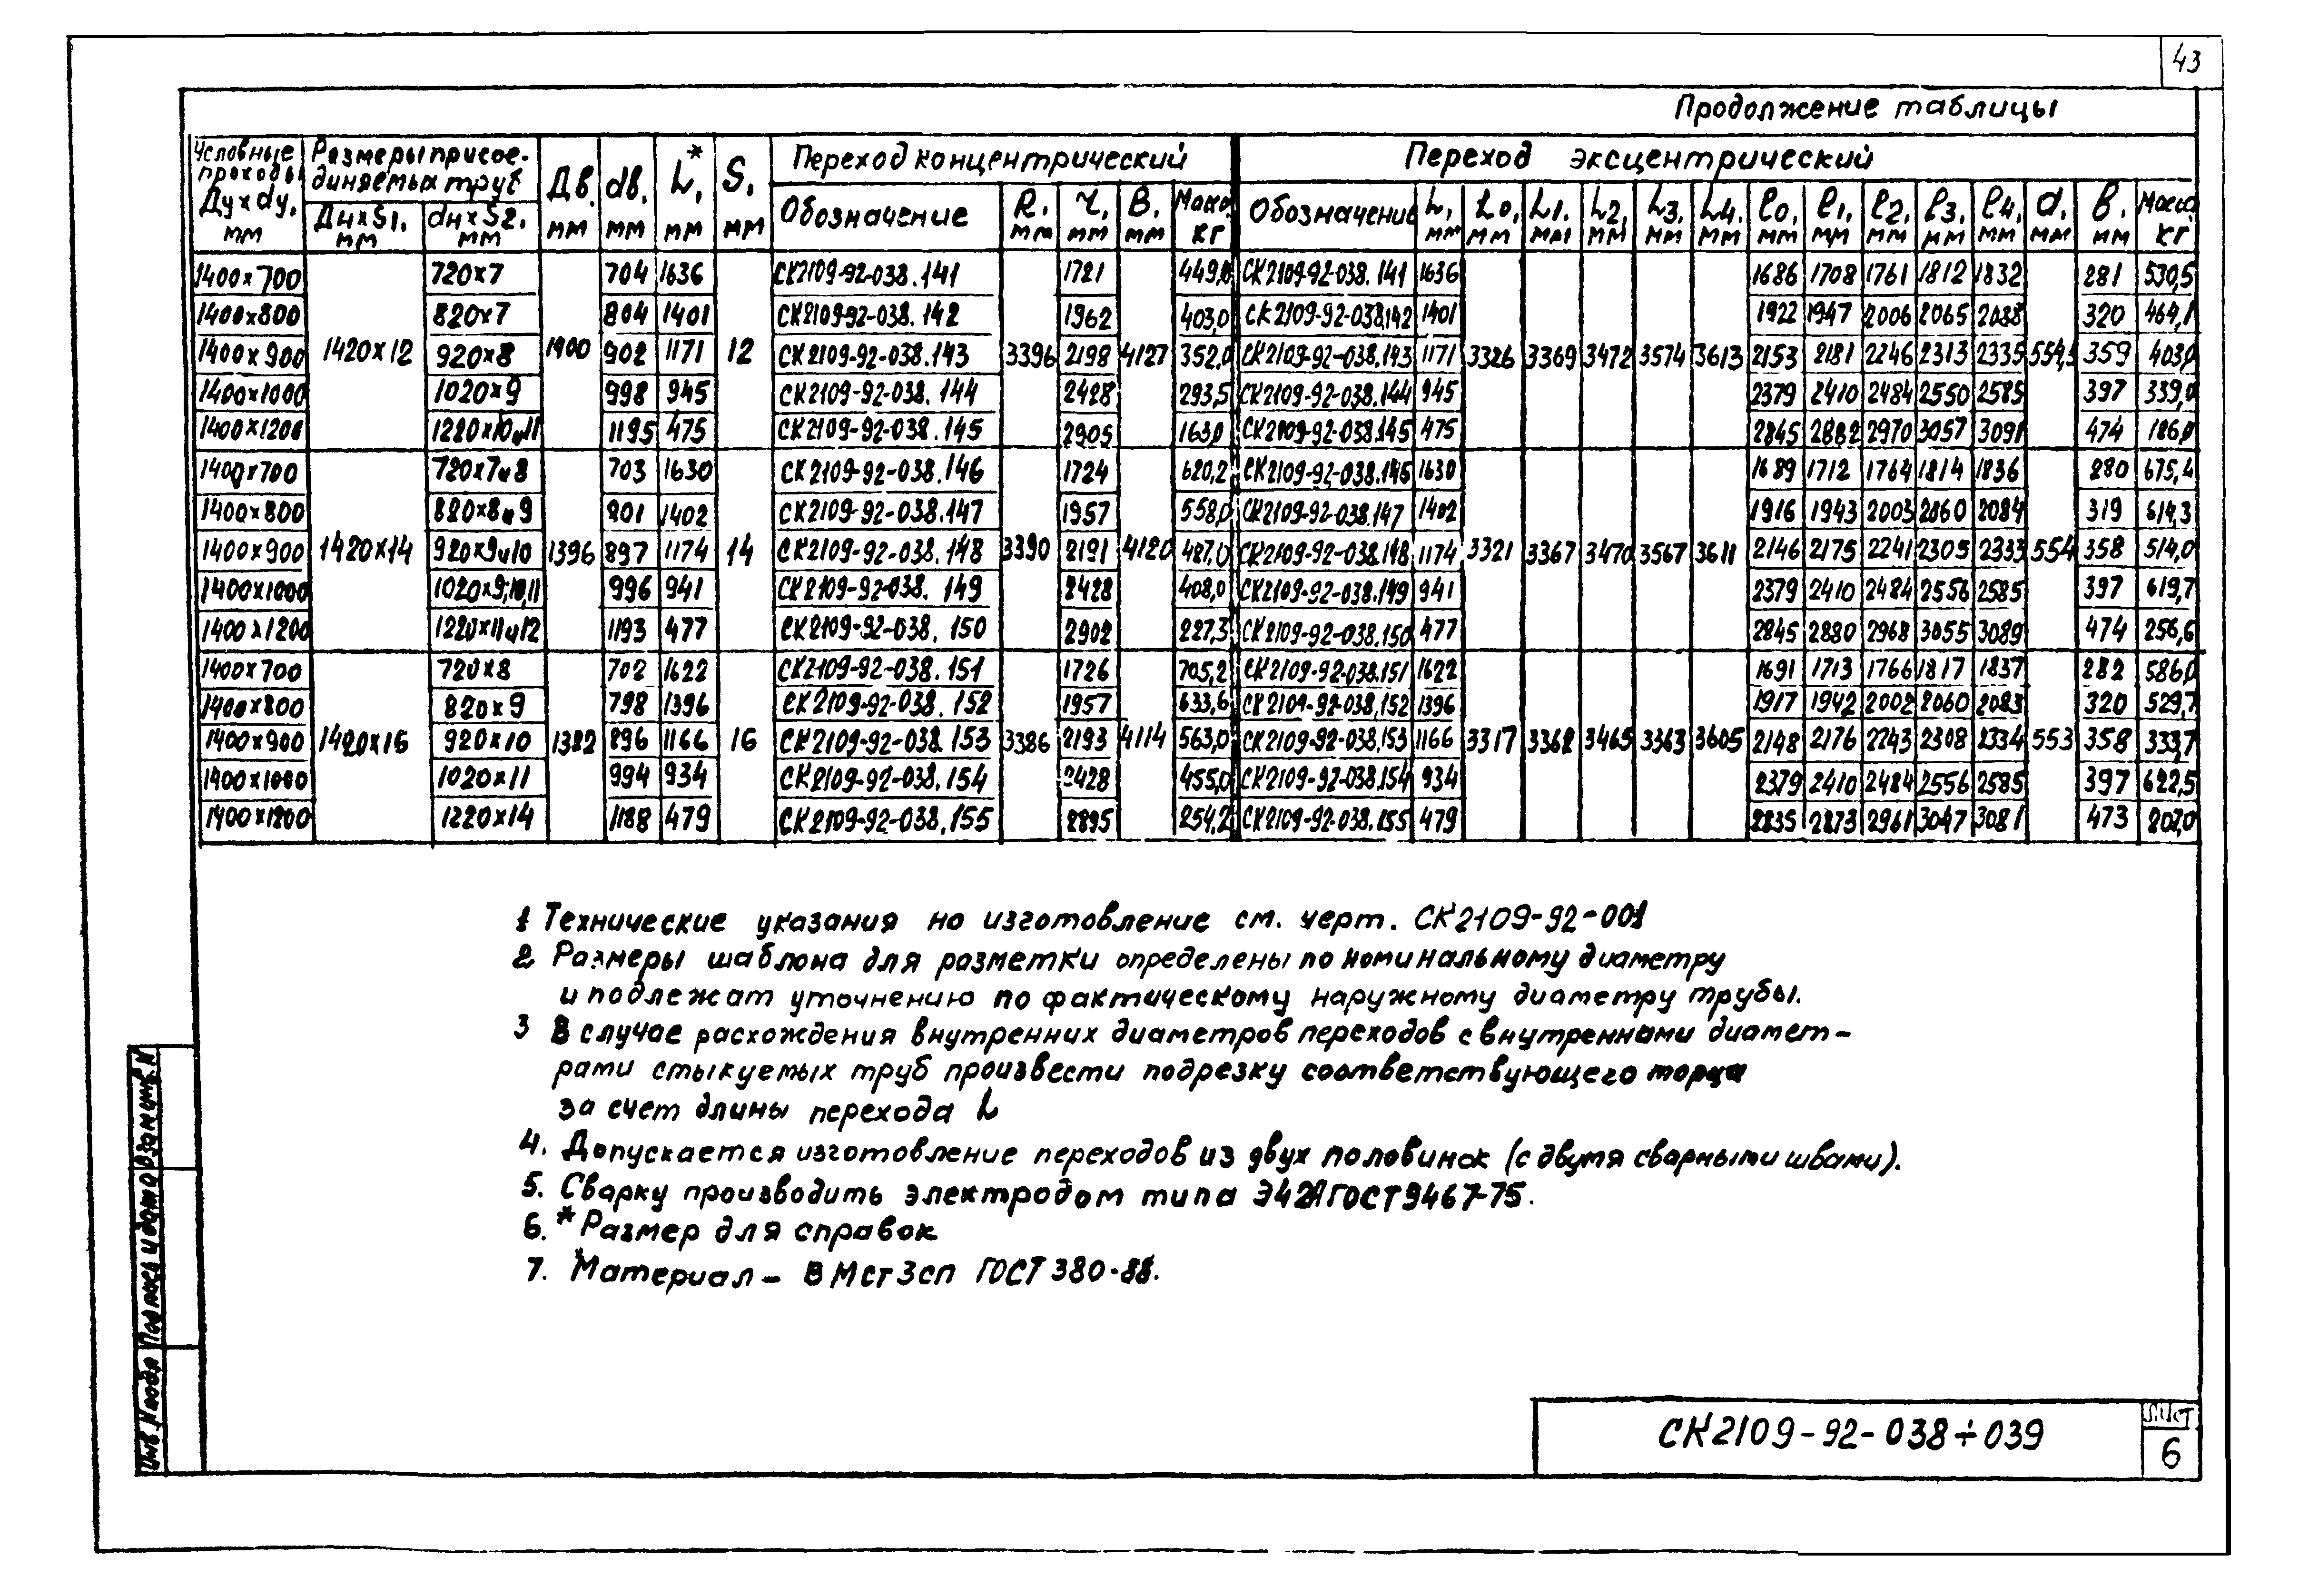 43
Продолжение таблицы
Условные проходы Ду х dу, мм | Размеры присоединяемых труб | Дв. мм | dв. мм | L*, мм | S, мм | Переход концентрический | Переход эксцентрический
Дн х S1, мм | dн х S2, мм | Обозначение | R, мм | r, мм | B, мм | Масса, кг | Обозначение | L, мм | L0, мм | L1, мм | L2, мм | L3, мм | L4, мм | l0, мм | l1, мм | l2, мм | l3, мм | l4, мм | d, мм | b, мм | Масса кг
1400х700 720х7 704 1636 СК2109-92-038.141 1721 449,0 СК2109-92-038.141 1636 1686 1708 1761 1812 1832 281 530,5
1400х800 820х7 804 1401 СК2109-92-038.142 1962 403,0 СК2109-92-038.142 1401 1922 1947 2006 2065 2088 320 464,1
1400х900 1420х12 920х8 1400 902 1171 12 СК2109-92-038.143 3396 2198 4127 352,0 СК2109-92-038.143 1171 3326 3369 3472 3574 3613 2153 2181 2246 2313 2335 554,5 359 403,0
1400х1000 1020х9 998 945 СК2109-92-038.144 2428 293,5 СК2109-92-038.144 945 2379 2410 2484 2550 2585 397 339,0
1400х1200 1220х10и11 1195 475 СК2109-92-038.145 2905 163,0 СК2109-92-038.145 475 2845 2882 2970 3057 3091 474 186,0
1400х700 720х7и8 703 1630 СК2109-92-038.146 1724 620,2 СК2109-92-038.146 1630 1689 1712 1764 1814 1836 280 675,4
1400х800 820х8и9 801 1402 СК2109-92-038.147 1957 558,0 СК2109-92-038.147 1402 1916 1943 2003 2060 2084 319 614,3
1400х900 1420х14 920х9и10 1396 897 1174 14 СК2109-92-038.148 3390 2191 4120 487,0 СК2109-92-038.148 1174 3321 3367 3470 3567 3611 2146 2175 2241 2305 2333 554 358 514,0
1400х1000 1020х9;10,11 996 941 СК2109-92-038.149 2428 408,0 СК2109-92-038.149 941 2379 2410 2484 2556 2585 397 619,7
1400х1200 1220х11и12 1193 477 СК2109-92-038.150 2902 227,3 СК2109-92-038.150 477 2845 2880 2968 3055 3089 474 256,6
1400х700 720х8 702 1622 СК2109-92-038.151 1726 705,2 СК2109-92-038.151 1622 1691 1713 1766 1817 1837 282 586,0
1400х800 820х9 798 1396 СК2109-92-038.152 1957 633,6 СК2109-92-038.152 1396 1917 1942 2002 2060 2083 320 529,7
1400х900 1420х16 920х10 1382 896 1166 16 СК2109-92-038.153 3386 2193 4114 563,0 СК2109-92-038.153 1166 3317 3362 3465 3363 3605 2148 2176 2243 2308 2334 553 358 333,7
1400х1000 1020х11 994 934 СК2109-92-038.154 2428 455,0 СК2109-92-038.154 934 2379 2410 2484 2556 2585 397 622,5
1400х1200 1220х14 1188 479 СК2109-92-038.155 2895 254,2 СК2109-92-038.155 479 2835 2873 2961 3047 3081 473 207,0
1 Технические указания на изготовление см. черт. СК2109-92-001
2 Размеры шаблона для разметки определены по номинальному диаметру
и подлежат уточнению по фактическому наружному диаметру трубы.
3 В случае расхождения внутренних диаметров переходов с внутренними диамет-
рами стыкуемых труб произвести подрезку соответствующего торца
за счет длины перехода L
4. Допускается изготовление переходов из двух половинок (с двумя сварными швами).
5. Сварку производить электродом типа Э42А ГОСТ 9467-75.
6. * Размер для справок
7. Материал – ВМст3сп ГОСТ 380-88.
Инв. № подл. Подпись и дата Взам инв. №
СК2109-92-038÷039
Лист
6